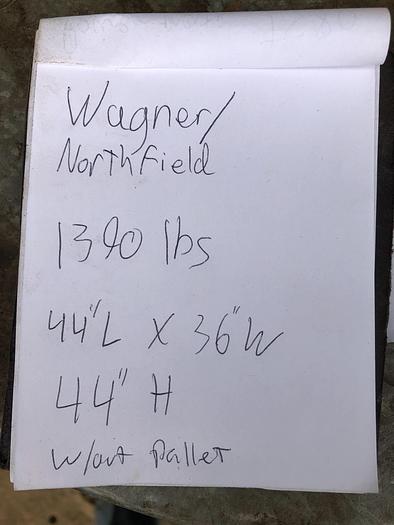 Wagner/
Northfield
1390 lbs
44"L X 36"W
44" H
w/out Pallet